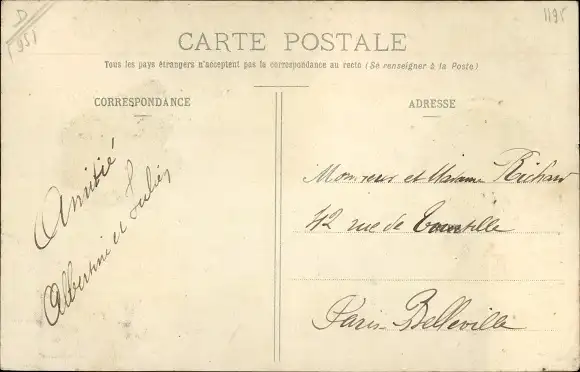 D
(95)
1195
CARTE POSTALE
Tous les pays étrangers n'acceptent pas la correspondance au recto (Se renseigner à la Poste)
CORRESPONDANCE
ADRESSE
Amitié
Albertine et Julien
Monsieur et Madame Richard
42 rue de Tourtille
Paris-Belleville